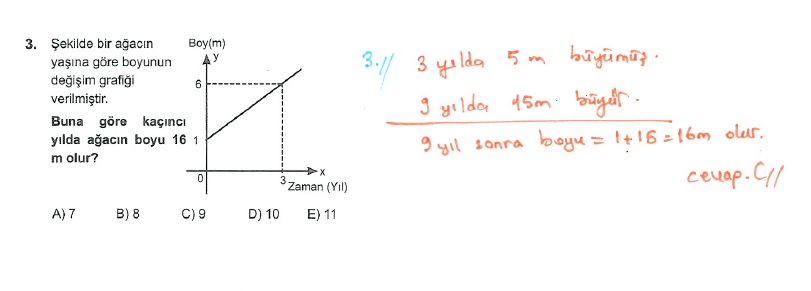 3. Şekilde bir ağacın
yaşına göre boyunun
değişim grafiği
verilmiştir.
Buna göre kaçıncı
yılda ağacın boyu 16
m olur?
Boy(m)
y
6
1
0
3
x
Zaman (Yıl)
A) 7 B) 8 C) 9 D) 10 E) 11
3.// 3 yılda 5 m büyümüş.
9 yılda 15m büyür.
9 yıl sonra boyu = 1+15 = 16m olur.
cevap. C//